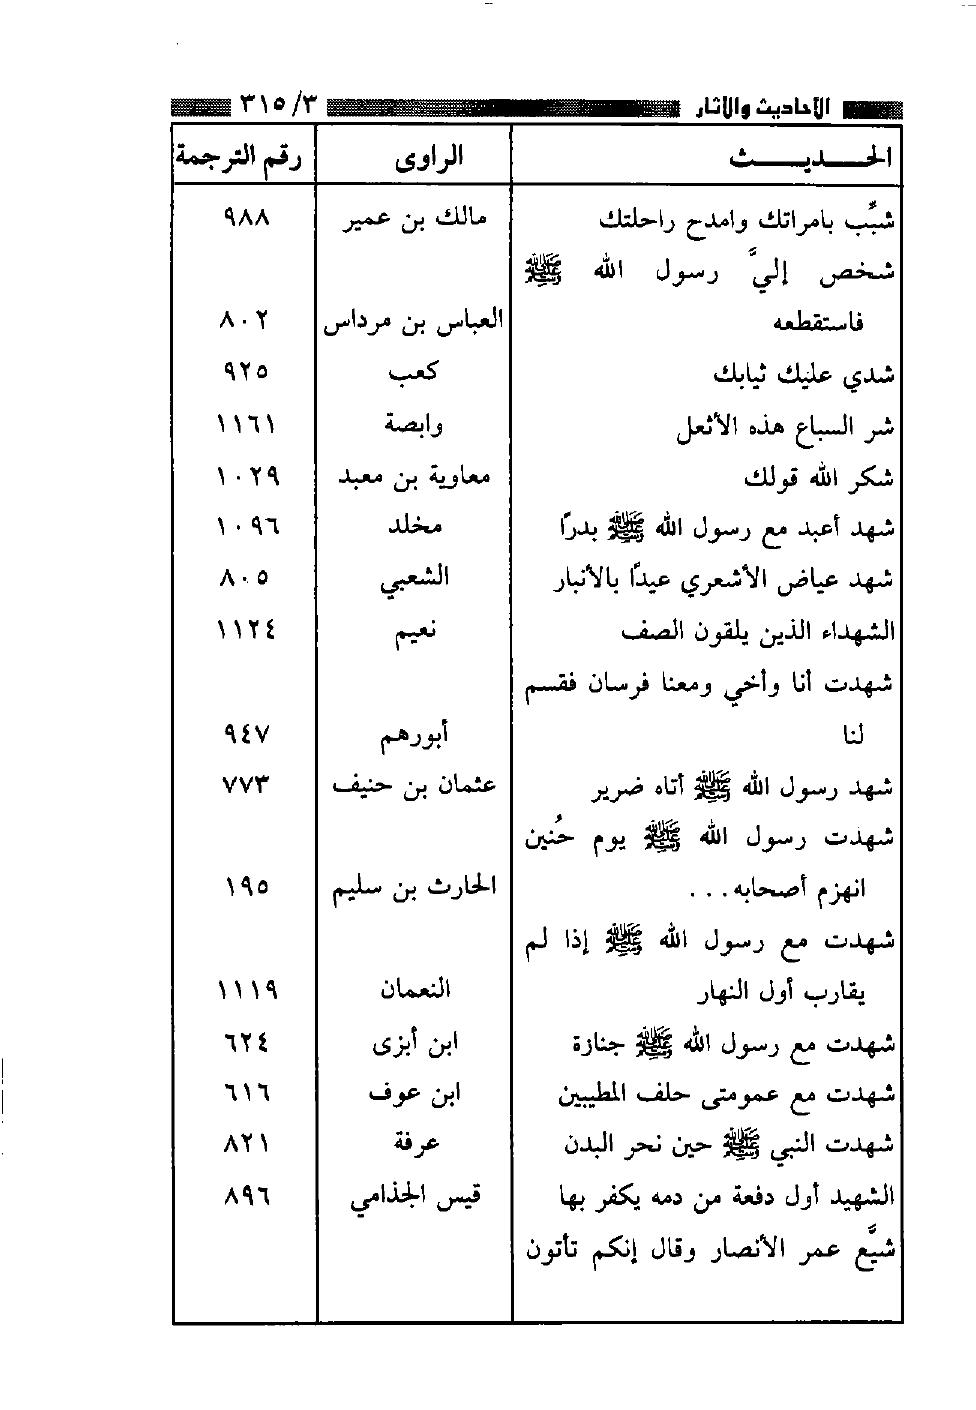 الأحاديث والآثار ٣١٥/٣
الحـــديـــث الراوى رقم الترجمة
شبِّب بامراتك وامدح راحلتك مالك بن عمير ٩٨٨
شخص إليَّ رسول الله ﷺ
فاستقطعه العباس بن مرداس ٨٠٢
شدي عليك ثيابك كعب ٩٢٥
شر السباع هذه الأثعل وابصة ١١٦١
شكر الله قولك معاوية بن معبد ١٠٢٩
شهد أعبد مع رسول الله ﷺ بدرًا مخلد ١٠٩٦
شهد عياض الأشعري عيدًا بالأنبار الشعبي ٨٠٥
الشهداء الذين يلقون الصف نعيم ١١٢٤
شهدت أنا وأخي ومعنا فرسان فقسم
لنا أبورهم ٩٤٧
شهد رسول الله ﷺ أتاه ضرير عثمان بن حنيف ٧٧٣
شهدت رسول الله ﷺ يوم حُنين
انهزم أصحابه . . . الحارث بن سليم ١٩٥
شهدت مع رسول الله ﷺ إذا لم
يقارب أول النهار النعمان ١١١٩
شهدت مع رسول الله ﷺ جنازة ابن أبزى ٦٢٤
شهدت مع عمومتى حلف المطيبين ابن عوف ٦١٦
شهدت النبي ﷺ حين نحر البدن عرفة ٨٢١
الشهيد أول دفعة من دمه يكفر بها قيس الجذامي ٨٩٦
شيَّع عمر الأنصار وقال إنكم تأتون